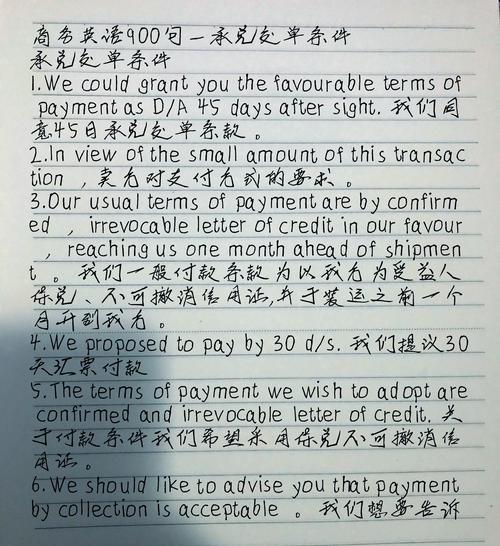 商务英语900句－承兑交单条件
承兑交单条件
1.We could grant you the favourable terms of
payment as D/A 45 days after sight. 我们同
意45日承兑交单条款。
2.In view of the small amount of this transac
tion , 卖方对支付方式的要求。
3.Our usual terms of payment are by confirm
ed , irrevocable letter of credit in our favour
, reaching us one month ahead of shipmen
t 。我们一般付款条款为以我方为受益人
保兑、不可撤消信用证,并于装运之前一个
月开到我方。
4.We proposed to pay by 30 d/s. 我们提议30
天汇票付款
5.The terms of payment we wish to adopt are
confirmed and irrevocable letter of credit. 关
于付款条件我们希望采用保兑不可撤消信
用证。
6.We should like to advise you that payment
by collection is acceptable 。我们想要告诉